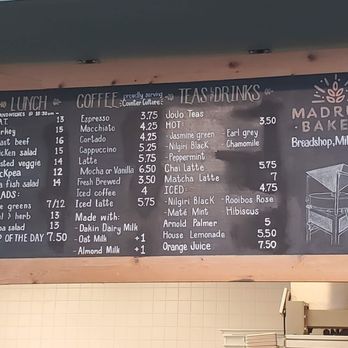 LUNCH
SANDWICHES @ 10:30
13
rkey 15
ast beef 16
icken salad 15
asted veggie 14
ickpea 12
a fish salad 14
ADS:
e greens 7/12
) herb 13
a salad 13
P OF THE DAY 7.50
COFFEE proudly serving Counter Culture
Espresso 3.75
Macchiato 4.25
Cortado 4.25
Cappuccino 5.25
Latte 5.75
Mocha or Vanilla 6.50
Fresh Brewed 3.50
Iced coffee 4
Iced Latte 5.75
Made with:
- Dakin Dairy Milk
- Oat Milk +1
- Almond Milk +1
TEAS & DRINKS
JoJo Teas
HOT: 3.50
- Jasmine green Earl grey
- Nilgiri Black Chamomile
- Peppermint
Chai Latte 5.75
Matcha Latte 7
ICED: 4.75
- Nilgiri Black - Rooibos Rose
- Maté Mint - Hibiscus
Arnold Palmer 5
House Lemonade 5.50
Orange Juice 7.50
MADRU
BAKE
Breadshop, Mil